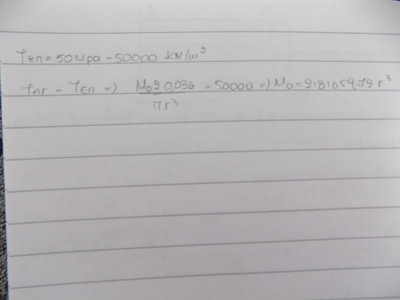 τεπ = 50 Mpa - 50000 KN/m²
τπr - τεπ => M₀ 2 0,036 / πr³ - 50000 => M₀ = 2181659,72 r³